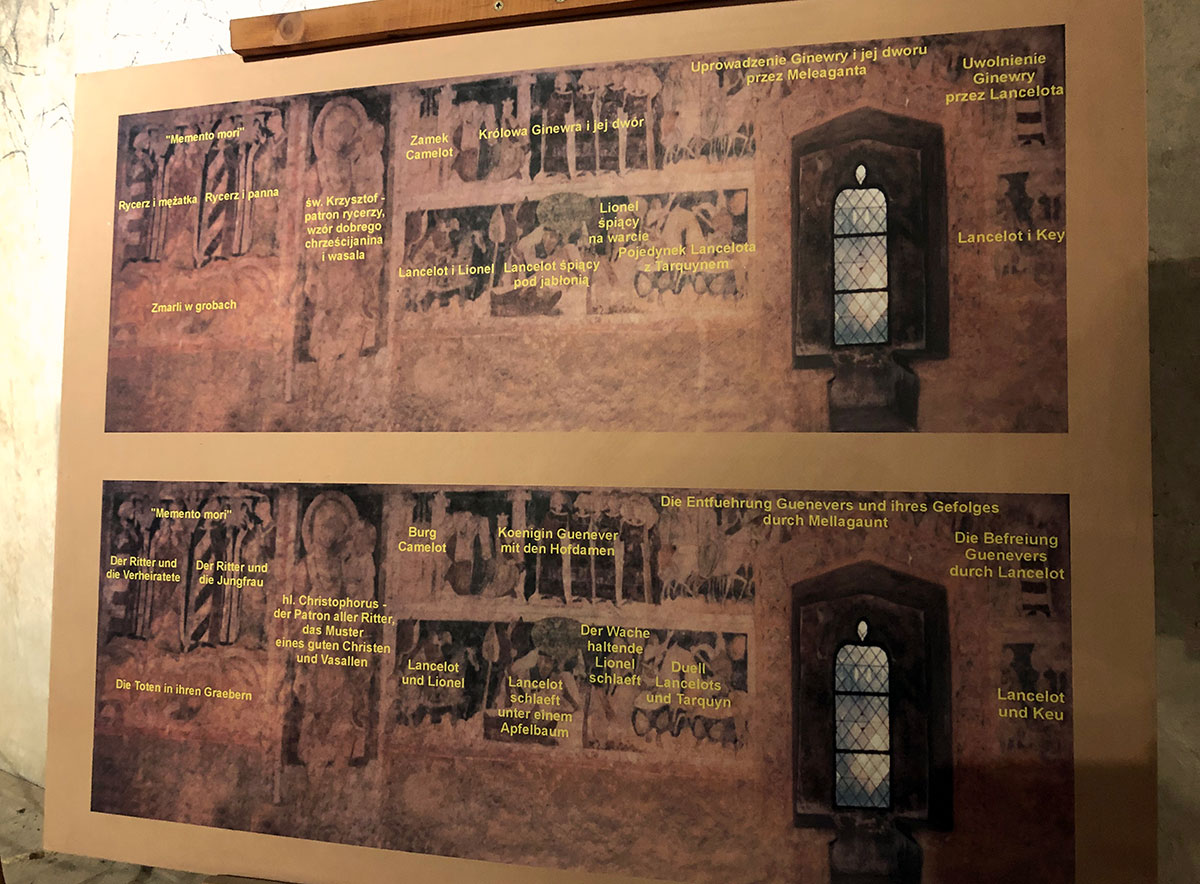 "Memento mori"
Rycerz i mężatka
Rycerz i panna
Zmarli w grobach
św. Krzysztof -
patron rycerzy,
wzór dobrego
chrześcijanina
i wasala
Zamek
Camelot
Królowa Ginewra i jej dwór
Uprowadzenie Ginewry i jej dworu
przez Meleaganta
Uwolnienie
Ginewry
przez Lancelota
Lancelot i Lionel
Lancelot śpiący
pod jabłonią
Lionel
śpiący
na warcie
Pojedynek Lancelota
z Tarquynem
Lancelot i Key
"Memento mori"
Der Ritter und
die Verheiratete
Der Ritter und
die Jungfrau
Die Toten in ihren Graebern
hl. Christophorus -
der Patron aller Ritter,
das Muster
eines guten Christen
und Vasallen
Burg
Camelot
Koenigin Guenever
mit den Hofdamen
Die Entfuehrung Guenevers und ihres Gefolges
durch Mellagaunt
Die Befreiung
Guenevers
durch Lancelot
Lancelot
und Lionel
Lancelot
schlaeft
unter einem
Apfelbaum
Der Wache
haltende
Lionel
schlaeft
Duell
Lancelots
und Tarquyn
Lancelot
und Keu